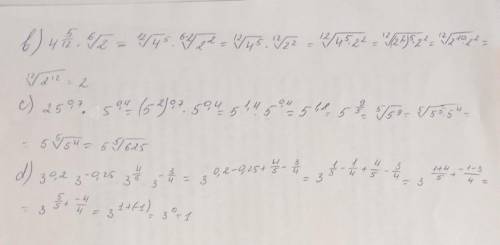 b) 4^{5/12} · ⁶√2 = ¹²√4⁵ · ⁶·²√2² = ¹²√4⁵ · ¹²√2² = ¹²√4⁵2² = ¹²√(2²)⁵2² = ¹²√2¹⁰·2² =
¹²√2¹² = 2
c) 25^{0,7} · 5^{0,4} = (5²)^{0,7} · 5^{0,4} = 5^{1,4} · 5^{0,4} = 5^{1,8} = 5^{9/5} = ⁵√5⁹ = ⁵√5⁵·5⁴ =
= 5 ⁵√5⁴ = 5 ⁵√625
d) 3^{0,2} · 3^{-0,25} · 3^{4/5} · 3^{-3/4} = 3^{0,2-0,25+4/5-3/4} = 3^{1/5-1/4+4/5-3/4} = 3^{(1+4)/5+(-1-3)/4} =
= 3^{5/5+(-4)/4} = 3^{1+(-1)} = 3⁰ = 1